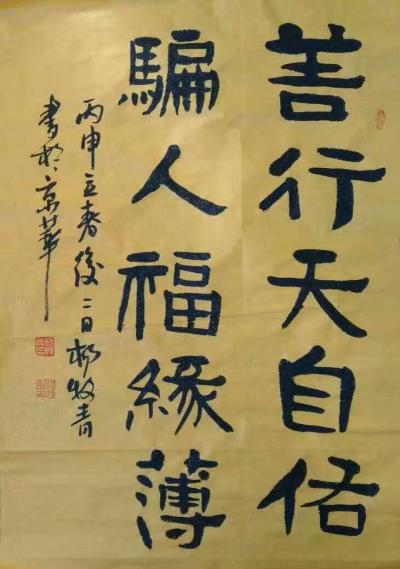 善行天自佑
騙人福緣薄
丙申立春後二日楊牧青
書於京華